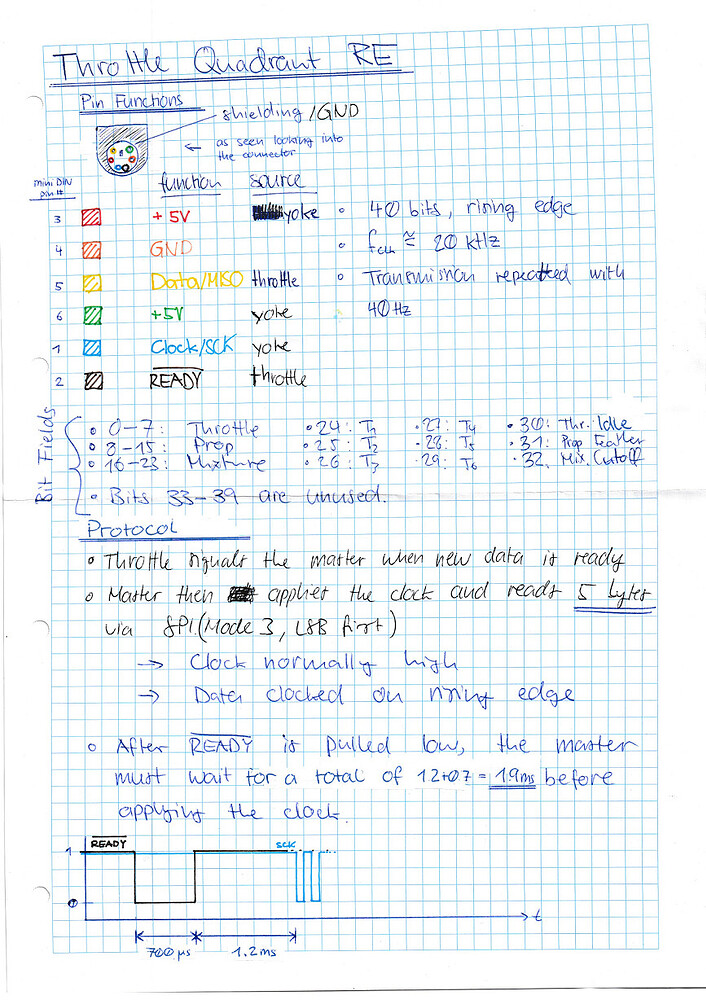 Throttle Quadrant RE
Pin Functions
shielding/GND
← as seen looking into
the connector
mini DIN
pin #
function source
3 +5V yoke
4 GND
5 Data/MISO throttle
6 +5V yoke
1 Clock/SCK yoke
2 READY throttle
• 40 bits, rising edge
• fclk ≅ 20 kHz
• Transmission repeated with
40Hz
Bit Fields
• 0-7: Throttle • 24: T1 • 27: T4 • 30: Thr. Idle
• 8-15: Prop • 25: T2 • 28: T5 • 31: Prop Feather
• 16-23: Mixture • 26: T3 • 29: T6 • 32. Mix. Cutoff
• Bits 33-39 are unused.
Protocol
• Throttle signals the master when new data is ready
• Master then applies the clock and reads 5 bytes
via SPI (Mode 3, LSB first)
→ Clock normally high
→ Data clocked on rising edge
• After READY is pulled low, the master
must wait for a total of 12+07 = 1.9ms before
applying the clock.
READY
SCK
1
0
t
700µs 1.2ms